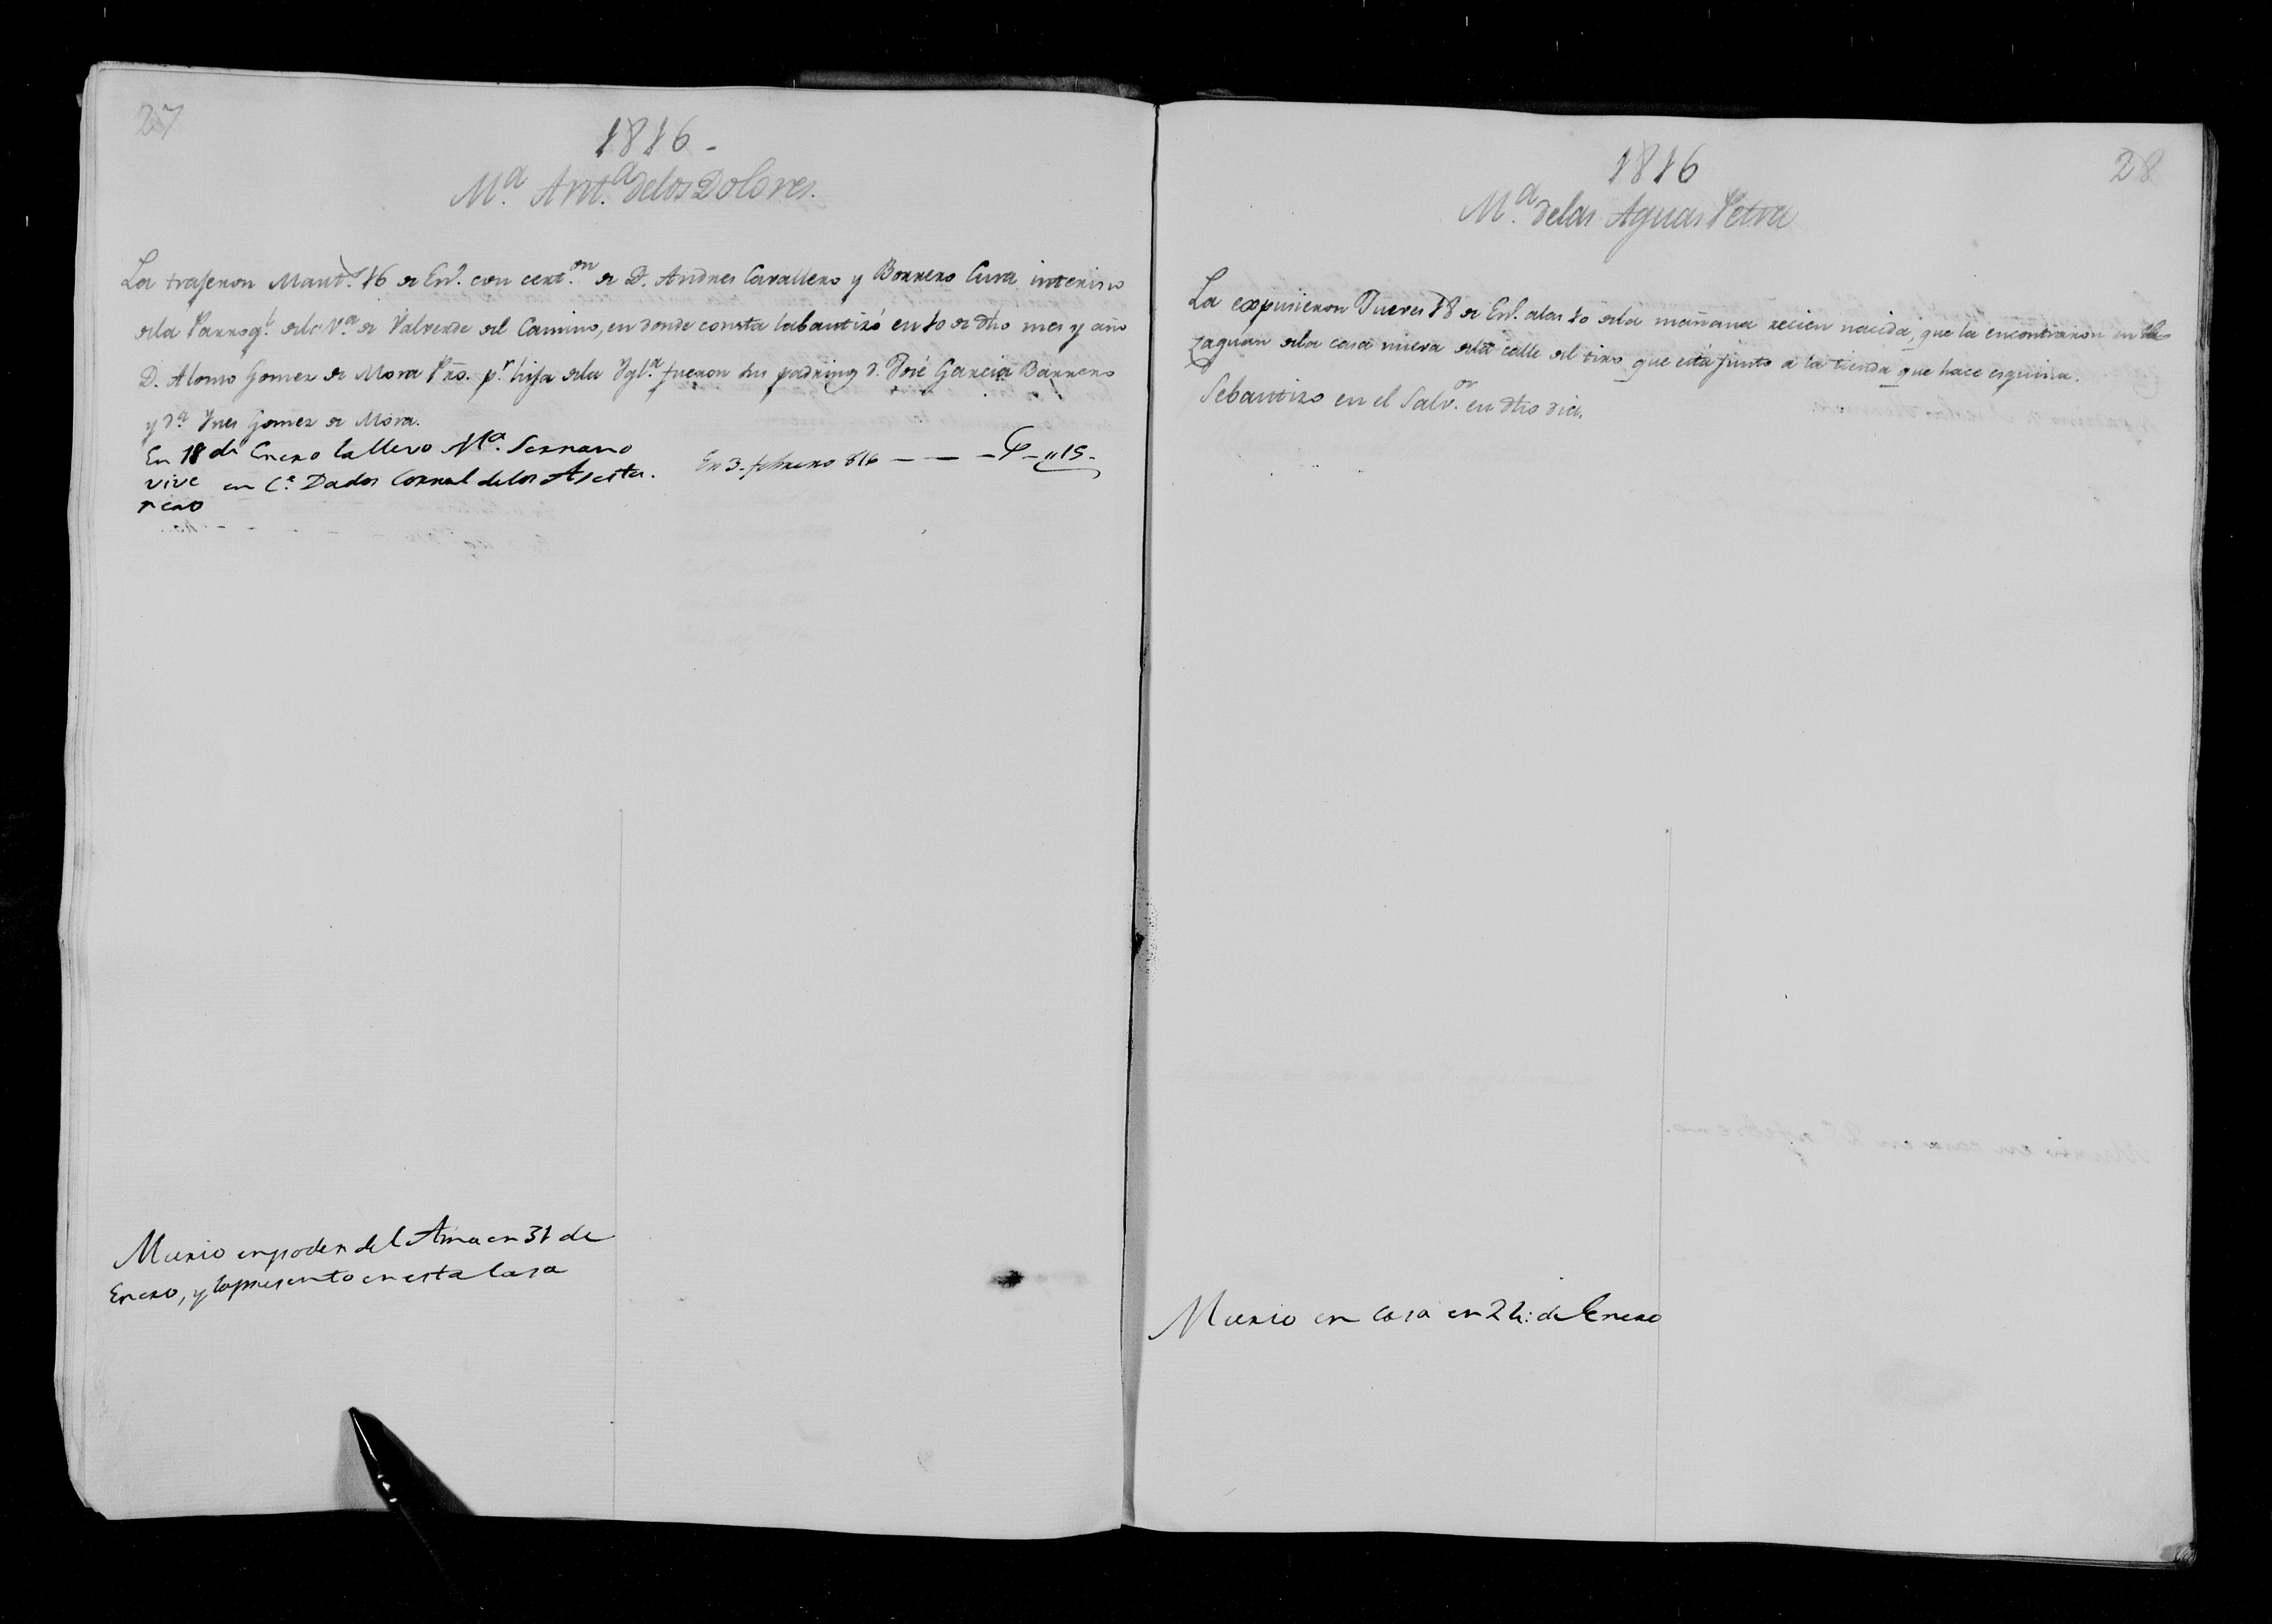 27
1816 -
Mª. Antª. delos Dolores.
La trageron Mart.s 16 de En.º con certon. de D. Andres Cavallero y Borrero Cura interino
dela Parroql. dela Vª. de Valverde del Camino, en donde consta labautizó en 10 de dho mes y año
D. Alonso Gomez de Mora Pro. pr. hija dela Yglª. fueron sus padrinos d. José Garcia Barrero
y dª Ynes Gomez de Mora.
En 18 de Enero la llevo Mª. Serrano
vive en Cª. Dados Corral delos Aseita.
reno
En 3. febrero 816 — — — 15 -
Murio en poder del Ama en 31 de
Enero, y la presento en esta Casa
28
1816
Mª. delas Aguas Petra
La expusieron Jueves 18 de En.º alas 10 dela mañana recien nacida, que la encontraron en el
zaguan dela casa nueva dela calle del tiro que está junto a la tienda que hace esquina.
Sebautizo en el Salvor. en dho dia.
Murio en Casa en 24: de Enero